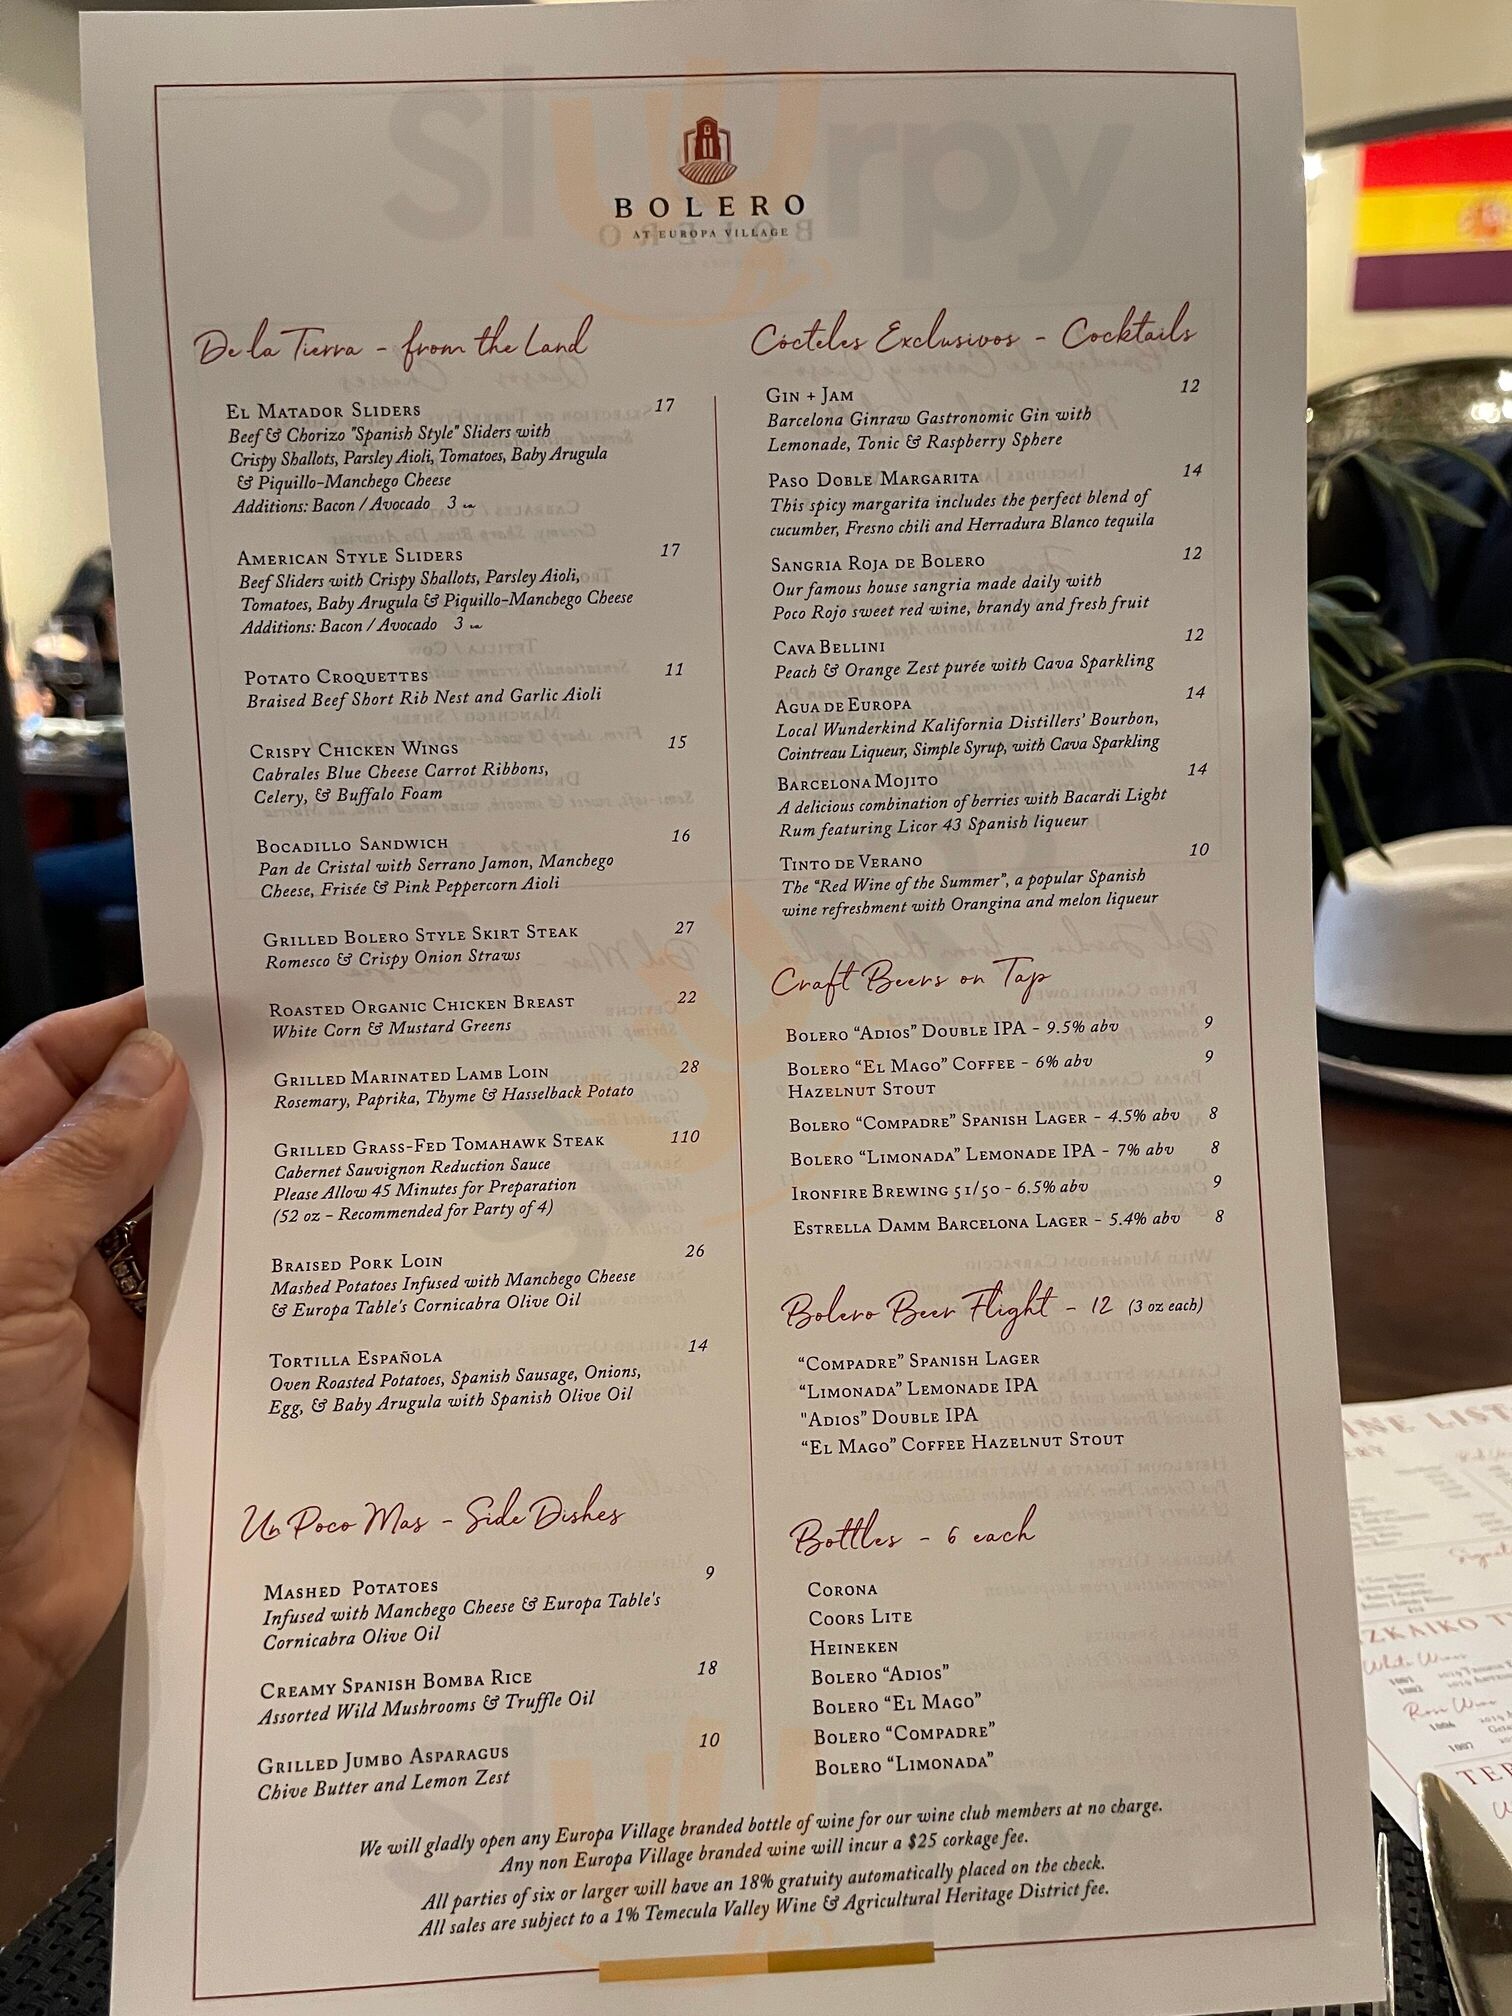 BOLERO
AT EUROPA VILLAGE
De la Tierra - from the Land
EL MATADOR SLIDERS 17
Beef & Chorizo "Spanish Style" Sliders with
Crispy Shallots, Parsley Aioli, Tomatoes, Baby Arugula
& Piquillo-Manchego Cheese
Additions: Bacon / Avocado 3 ea
AMERICAN STYLE SLIDERS 17
Beef Sliders with Crispy Shallots, Parsley Aioli,
Tomatoes, Baby Arugula & Piquillo-Manchego Cheese
Additions: Bacon / Avocado 3 ea
POTATO CROQUETTES 11
Braised Beef Short Rib Nest and Garlic Aioli
CRISPY CHICKEN WINGS 15
Cabrales Blue Cheese Carrot Ribbons,
Celery, & Buffalo Foam
BOCADILLO SANDWICH 16
Pan de Cristal with Serrano Jamon, Manchego
Cheese, Frisée & Pink Peppercorn Aioli
GRILLED BOLERO STYLE SKIRT STEAK 27
Romesco & Crispy Onion Straws
ROASTED ORGANIC CHICKEN BREAST 22
White Corn & Mustard Greens
GRILLED MARINATED LAMB LOIN 28
Rosemary, Paprika, Thyme & Hasselback Potato
GRILLED GRASS-FED TOMAHAWK STEAK 110
Cabernet Sauvignon Reduction Sauce
Please Allow 45 Minutes for Preparation
(52 oz - Recommended for Party of 4)
BRAISED PORK LOIN 26
Mashed Potatoes Infused with Manchego Cheese
& Europa Table's Cornicabra Olive Oil
TORTILLA ESPAÑOLA 14
Oven Roasted Potatoes, Spanish Sausage, Onions,
Egg, & Baby Arugula with Spanish Olive Oil
Un Poco Mas - Side Dishes
MASHED POTATOES 9
Infused with Manchego Cheese & Europa Table's
Cornicabra Olive Oil
CREAMY SPANISH BOMBA RICE 18
Assorted Wild Mushrooms & Truffle Oil
GRILLED JUMBO ASPARAGUS 10
Chive Butter and Lemon Zest
Cócteles Exclusivos - Cocktails
GIN + JAM 12
Barcelona Ginraw Gastronomic Gin with
Lemonade, Tonic & Raspberry Sphere
PASO DOBLE MARGARITA 14
This spicy margarita includes the perfect blend of
cucumber, Fresno chili and Herradura Blanco tequila
SANGRIA ROJA DE BOLERO 12
Our famous house sangria made daily with
Poco Rojo sweet red wine, brandy and fresh fruit
CAVA BELLINI 12
Peach & Orange Zest purée with Cava Sparkling
AGUA DE EUROPA 14
Local Wunderkind Kalifornia Distillers' Bourbon,
Cointreau Liqueur, Simple Syrup, with Cava Sparkling
BARCELONA MOJITO 14
A delicious combination of berries with Bacardi Light
Rum featuring Licor 43 Spanish liqueur
TINTO DE VERANO 10
The "Red Wine of the Summer", a popular Spanish
wine refreshment with Orangina and melon liqueur
Craft Beers on Tap
BOLERO "ADIOS" DOUBLE IPA - 9.5% abv 9
BOLERO "EL MAGO" COFFEE - 6% abv 9
HAZELNUT STOUT
BOLERO "COMPADRE" SPANISH LAGER - 4.5% abv 8
BOLERO "LIMONADA" LEMONADE IPA - 7% abv 8
IRONFIRE BREWING 51/50 - 6.5% abv 9
ESTRELLA DAMM BARCELONA LAGER - 5.4% abv 8
Bolero Beer Flight - 12 (3 oz each)
"COMPADRE" SPANISH LAGER
"LIMONADA" LEMONADE IPA
"ADIOS" DOUBLE IPA
"EL MAGO" COFFEE HAZELNUT STOUT
Bottles - 6 each
CORONA
COORS LITE
HEINEKEN
BOLERO "ADIOS"
BOLERO "EL MAGO"
BOLERO "COMPADRE"
BOLERO "LIMONADA"
We will gladly open any Europa Village branded bottle of wine for our wine club members at no charge.
Any non Europa Village branded wine will incur a $25 corkage fee.
All parties of six or larger will have an 18% gratuity automatically placed on the check.
All sales are subject to a 1% Temecula Valley Wine & Agricultural Heritage District fee.
sluurpy